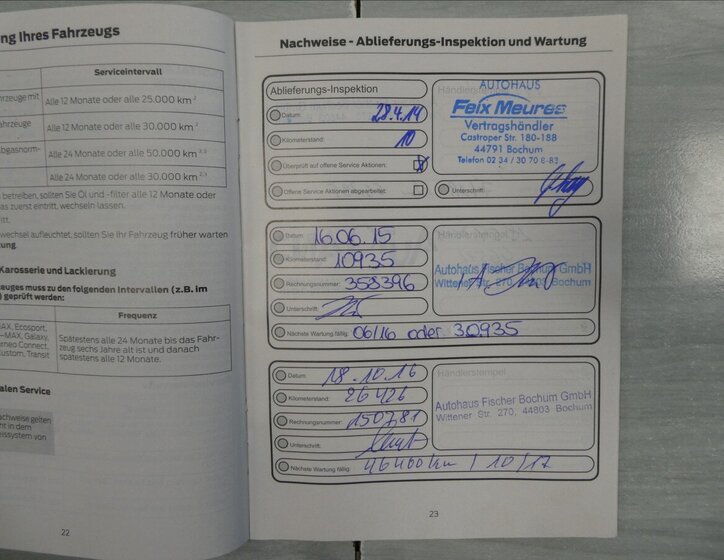 ng Ihres Fahrzeugs
Serviceintervall
rzeuge mit
Alle 12 Monate oder alle 25.000 km
ahrzeuge
Alle 12 Monate oder alle 30.000 km
bgasnorm-
Alle 24 Monate oder alle 50.000 km
Alle 24 Monate oder alle 30.000 km
betreiben, sollten Sie Öl und -filter alle 12 Monate oder
as zuerst entritt, wechseln lassen.
itt.
wechsel aufleuchtet, sollten Sie Ihr Fahrzeug früher warten
tung.
Karosserie und Lackierung
zeuges muss zu den folgenden Intervallen (z.B. im
) geprüft werden:
Frequenz
MAX, Ecosport,
-MAX, Galaxy,
rneo Connect,
Custom, Transit
Spätestens alle 24 Monate bis das Fahr-
zeug sechs Jahre alt ist und danach
spätestens alle 12 Monate.
alen Service
achweise gelten
ht in dem
eissystem von
22
Nachweise - Ablieferungs-Inspektion und Wartung
Ablieferungs-Inspektion
Datum: 28.4.14
Kilometerstand: 10
Überprüft auf offene Service Aktionen:
Offene Service Aktionen abgearbeitet:
AUTOHAUS
Feix Meures
Vertragshändler
Castroper Str. 180-188
44791 Bochum
Telefon 02 34 / 30 70 8-83
Unterschrift:
Datum: 16.06.15
Kilometerstand: 10935
Rechnungsnummer: 358396
Unterschrift:
Autohaus Fischer Bochum GmbH
Wittener Str. 270, 44803 Bochum
Nächste Wartung fällig: 06/16 oder 30935
Datum: 18.10.16
Kilometerstand: 26426
Rechnungsnummer: 150781
Unterschrift:
Händlerstempel
Autohaus Fischer Bochum GmbH
Wittener Str. 270, 44803 Bochum
Nächste Wartung fällig: 46400km / 10/17
23